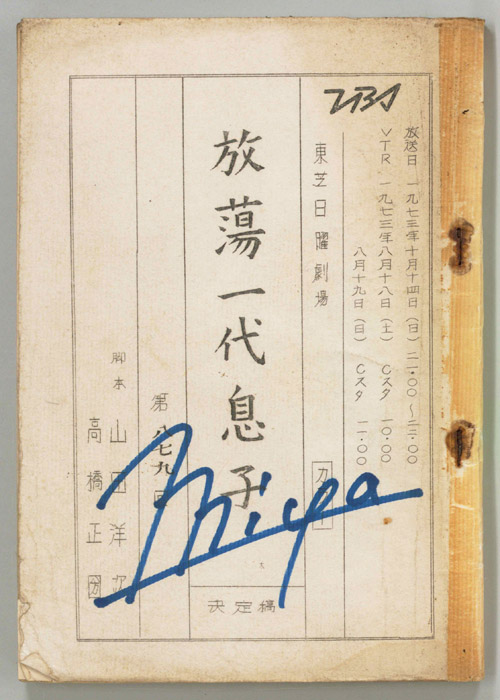 TBS
放送日 一九七三年十月十四日(日) 二一:〇〇～二二:〇〇
VTR 一九七三年八月十八日(土) Cスタ 一〇:〇〇
八月十九日(日) Cスタ 一一:〇〇
東芝日曜劇場
放蕩一代息子
決定稿
第八七九回
脚本 山田洋次
高橋正圀
Miya